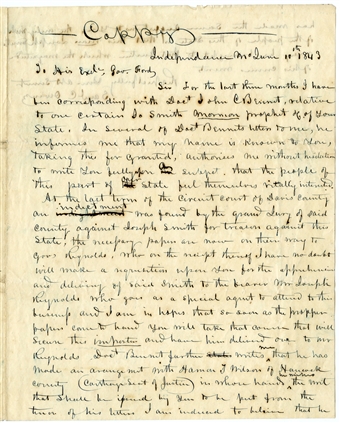 Copy
Independence Mo June 10th 1843
To His Excly Gov. Ford,
Sir For the last three months I have
been corresponding with Doct John C Bennet, relative
to one certain Jo Smith Mormon prophet &c of your
State. In several of Doct Bennets letters to me, he
informes me that my name is known to You,
taking this for granted, authorises me without hesitation
to write You fully for suspet, that the people of
this part of State feel themselves vitally interested.
At the last term of the Circuit court of Davis county
an indictment was found by the Grand Jury of said
county, against Joseph Smith for treason against this
State, the necessary papers are now on their way to
Gov Reynolds, who on the receipt thereof I have no doubt
will make a requisition upon You for the apprehension
and delivery of said Smith to the bearer Mr Joseph
Reynolds who goes as a special agent to attend to this
business and I am in hopes that so soon as the propper
papers come to hand You will take that course that will
secure this imposter and have him delivered over to mr
Reynolds Doct Bennit further writes me, that he has
made an arrangement with Harmon T Wilson of Hancock
county (Carthage Seat of Justice) in whose hands he wishes the writ
that shall be issued by You to be put from the
tenor of his letters I am induced to believe that he